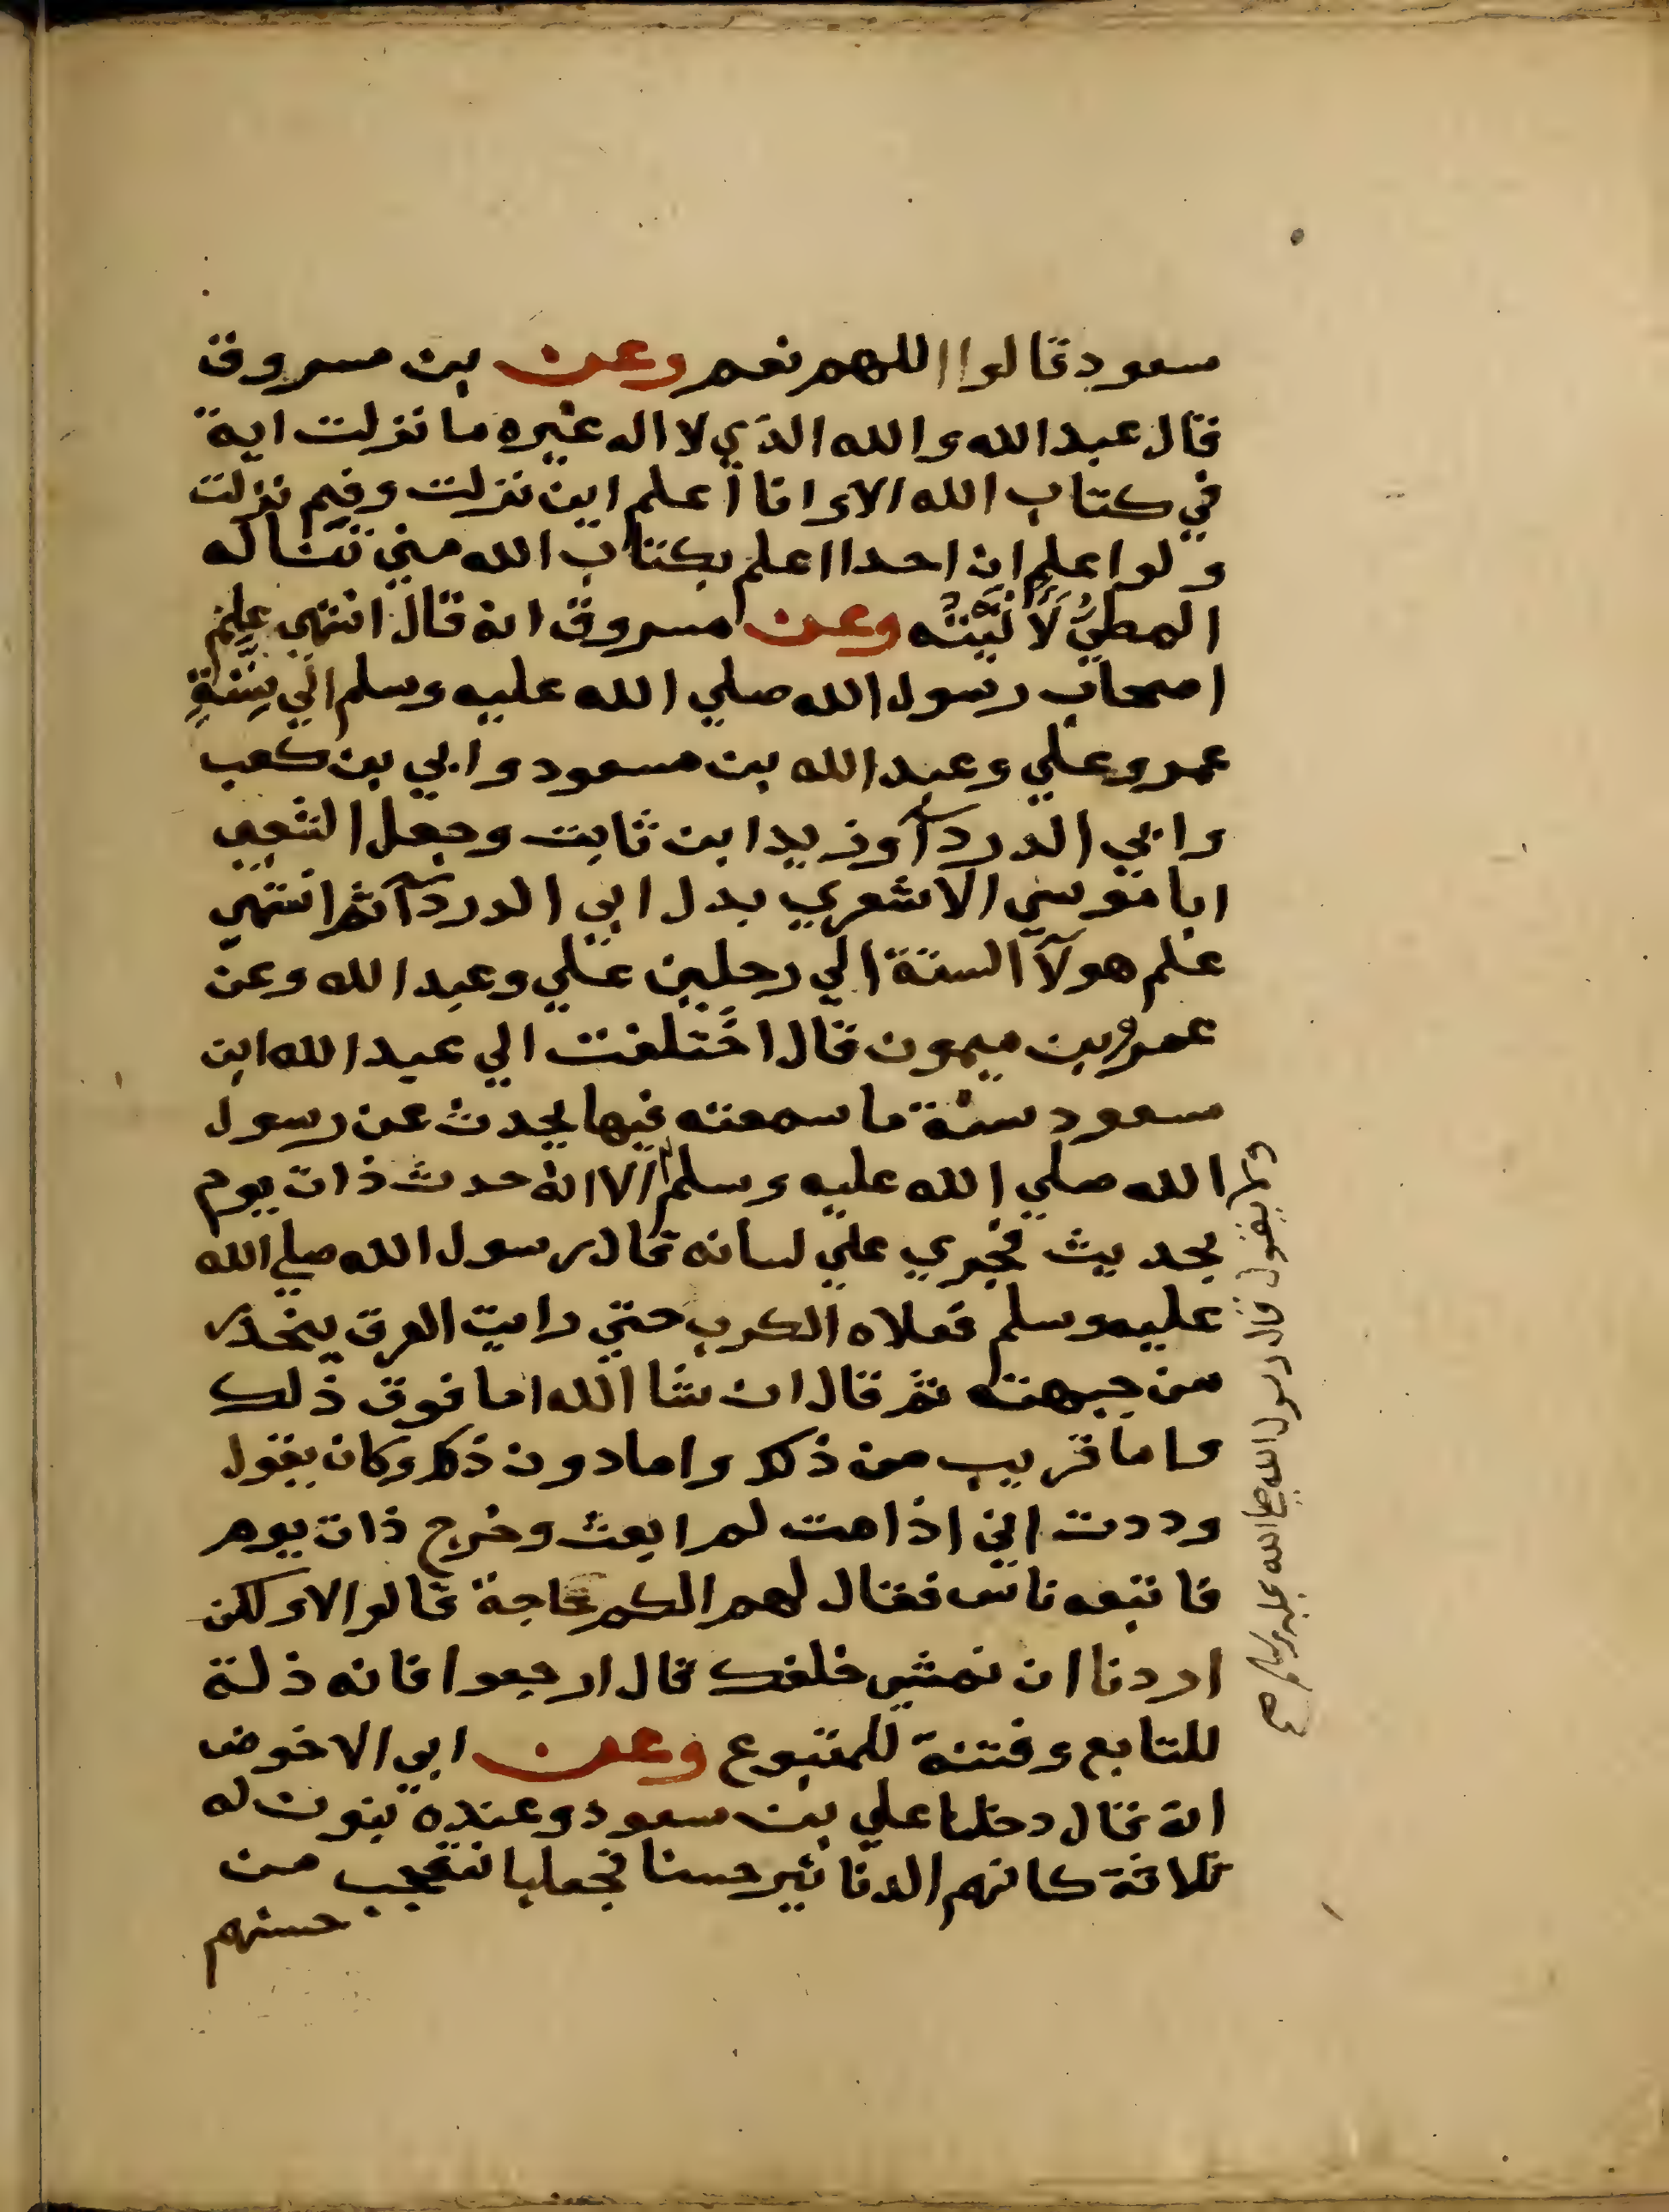 سعود قالوا اللهم نعم وعن بن مسروق
قال عبد الله والله الذي لا اله غيره ما نزلت اية
في كتاب الله الا وانا اعلم اين نزلت وفيم نزلت
ولو اعلم ان احدا اعلم بكتاب الله مني تناله
المطي لَأتَيْتُه وعن مسروق انه قال انتهي علم
اصحاب رسول الله صلي الله عليه وسلم الي سِتَّةٍ
عمر وعلي وعبد الله بن مسعود وابي بن كعب
وابي الدردآ وزيد ابن ثابت وجعل الشعبي
ابا موسي الاشعري بدل ابي الدردآ ثم انتهي
علم هولآ الستة الي رجلين علي وعبد الله وعن
عمرو بن ميمون قال اختلفت الي عبد الله ابن
سعود سنة ما سمعته فيها يحدث عن رسول
الله صلي الله عليه وسلم الا انه حدث ذات يوم
بحديث فجري علي لسانه قال رسول الله صلي الله
عليه وسلم فعلاه الكرب حتي رايت العرق ينحدر
من جبهته ثم قال ان شا الله اما فوق ذلك
واما قريب من ذلك واما دون ذلك وكان يقول
وددت اني اذا مت لم ابعث وخرج ذات يوم
فاتبعه ناس فقال لهم الكم حاجة قالوا لا ولكن
اردنا ان نمشي خلفك قال ارجعوا فانه ذلة
للتابع وفتنة للمتبوع وعن ابي الاخوض
انه قال دخلنا علي بن سعود وعنده بنون له
ثلاثة كانهم الدنانير حسنا فجعلنا نتعجب من
حسنهم
ولا يقول قال رسول الله صلي الله عليه وسلم صح